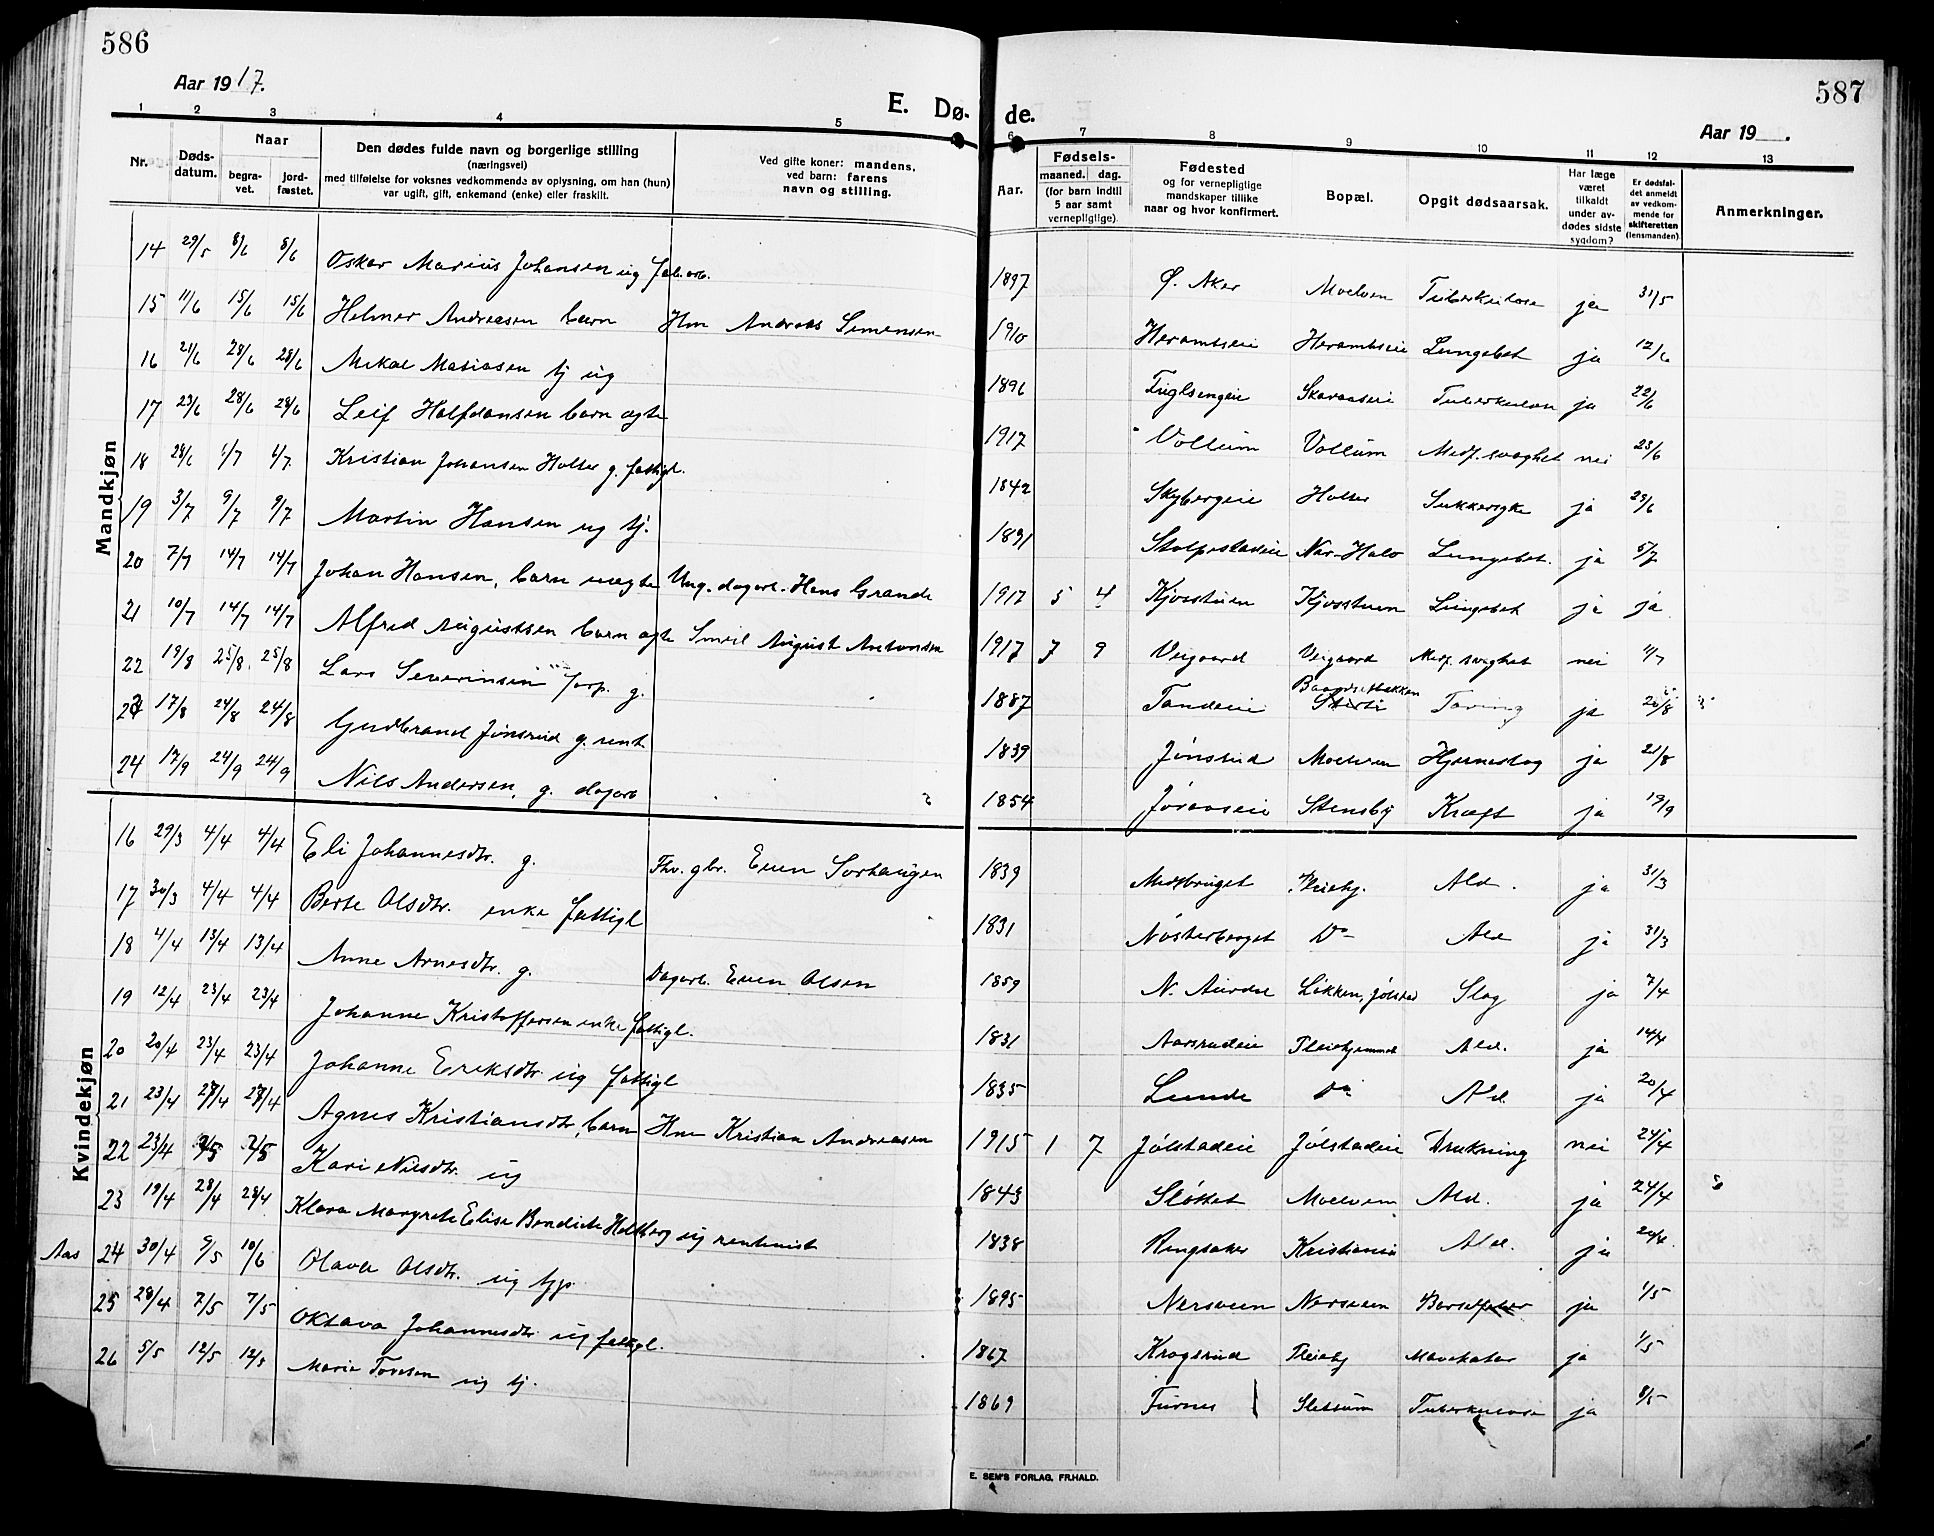 586
587
Aar 1917.
E. Dø- de.
Aar 19 .
1 2 3 4 5 6 7 8 9 10 11 12 13
Nr.
Døds-
datum.
Naar
begra-
vet.
jord-
fæstet.
Den dødes fulde navn og borgerlige stilling
(næringsvei)
med tilføielse for voksnes vedkommende av oplysning, om han (hun)
var ugift, gift, enkemand (enke) eller fraskilt.
Ved gifte koner: mandens,
ved barn: farens
navn og stilling.
Fødsels-
Aar.
maaned. dag.
(for barn indtil
5 aar samt
vernepligtige).
Fødested
og for vernepligtige
mandskaper tillike
naar og hvor konfirmert.
Bopæl.
Opgit dødsaarsak.
Har læge
været
tilkaldt
under av-
dødes sidste
sygdom?
Er dødsfal-
det anmeldt
av vedkom-
mende for
skifteretten
(lensmanden).
Anmerkninger.
Mandkjøn
14 29/5 8/6 8/6 Oskar Marius Johansen ug fab.arb. 1897 Ø. Aker Moelven Tuberkulose ja 31/5
15 11/6 15/6 15/6 Helmer Andreasen barn Hm Andreas Simensen 1910 Herambseie Herambseie Lungebet ja 12/6
16 21/6 28/6 28/6 Mikal Matiasen tj ug 1896 Fuglsengeie Skaraaseie Tuberkulose ja 22/6
17 23/6 28/6 28/6 Leif Halfdansen barn ægte 1917 Vollum Vollum Medf. svaghet nei 23/6
18 28/6 1/7 1/7 Kristian Johansen Holter g. fattigl. 1842 Skybergeie Holter Sukkersyke ja 29/6
19 3/7 9/7 9/7 Martin Hansen ug tj. 1891 Stolpestadeie Lungebet. ja 5/7
20 7/7 14/7 14/7 Johan Hansen, barn uægte Ung. dagarb. Hans Grande 1917 5 4 Kjosstuen Kjosstuen Lungebet ja ja
21 10/7 14/7 14/7 Alfred Augustsen barn ægte Smed August Antonsen 1917 7 9 Veigaard Veigaard Medf. svaghet nei 11/7
22 19/8 25/8 25/8 Lars Severinsen g. 1887 Tandeie Baardsetbakken Tæring ja 20/8
23 17/8 24/8 24/8 Gudbrand Jønsrud g. rent 1839 Jønsrud Moelven Hjerneslag ja 21/8
24 17/9 24/9 24/9 Nils Andersen, g. dagarb 1854 Jøraaseie Stensby Kræft ja 19/9
Kvindekjøn
16 29/3 4/4 4/4 Eli Johannesdtr. g. Fhv. gbr. Even Sorhaugen 1839 Pleiehj. Ald. ja 31/3
17 30/3 4/4 4/4 Berte Olsdtr. enke fattigl 1831 Nøsterberget Do Ald ja 31/3
18 4/4 13/4 13/4 Anne Arnesdtr. g. Dagarb. Even Olsen 1859 N. Aurdal Løkken, Jølstad Slag ja 7/4
19 12/4 23/4 23/4 Johanne Kristoffersen enke fattigl. 1831 Aarsrudeie Pleiehjemmet Ald. ja 14/4
20 20/4 23/4 23/4 Johanne Eriksdtr. ug fattigl 1835 Lunde Do Ald. ja 20/4
21 23/4 27/4 27/4 Agnes Kristiansdtr, barn Hm Kristian Andreasen 1915 1 7 Jølstadeie Jølstadeie Drukning nei 24/4
22 23/4 2/5 2/5 Kari Nilsdtr. ug 1843 Sløttet Moelven Ald. ja 24/4
23 19/4 28/4 28/4 Klara Margrete Elise Bendicte Holtberg ug rentenist 1838 Ringsaker Kristiania Ald. ja 20/4
Aas 24 30/4 9/5 10/6 Olava Olsdtr. ug tjp. 1895 Nersveen Nersveen Barselfeber ja 1/5
25 28/4 7/5 7/5 Oktava Johannesdtr. ug fattigl. 1867 Krogsrud Pleiehj Mavekatar ja 1/5
26 5/5 12/5 12/5 Marie Tovsen ug tj. 1869 Furnes Sletsum Tuberkulose ja 8/5
E. SEM'S FORLAG, FR.HALD.